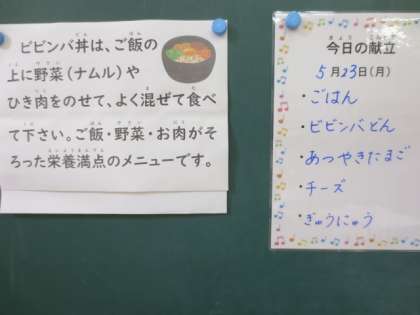 ビビンバ丼は、ご飯の
上に野菜（ナムル）や
ひき肉をのせて、よく混ぜて食べ
て下さい。ご飯・野菜・お肉がそ
ろった栄養満点のメニューです。
今日の献立
5月23日(月)
・ごはん
・ビビンバどん
・あつやきたまご
・チーズ
・ぎゅうにゅう